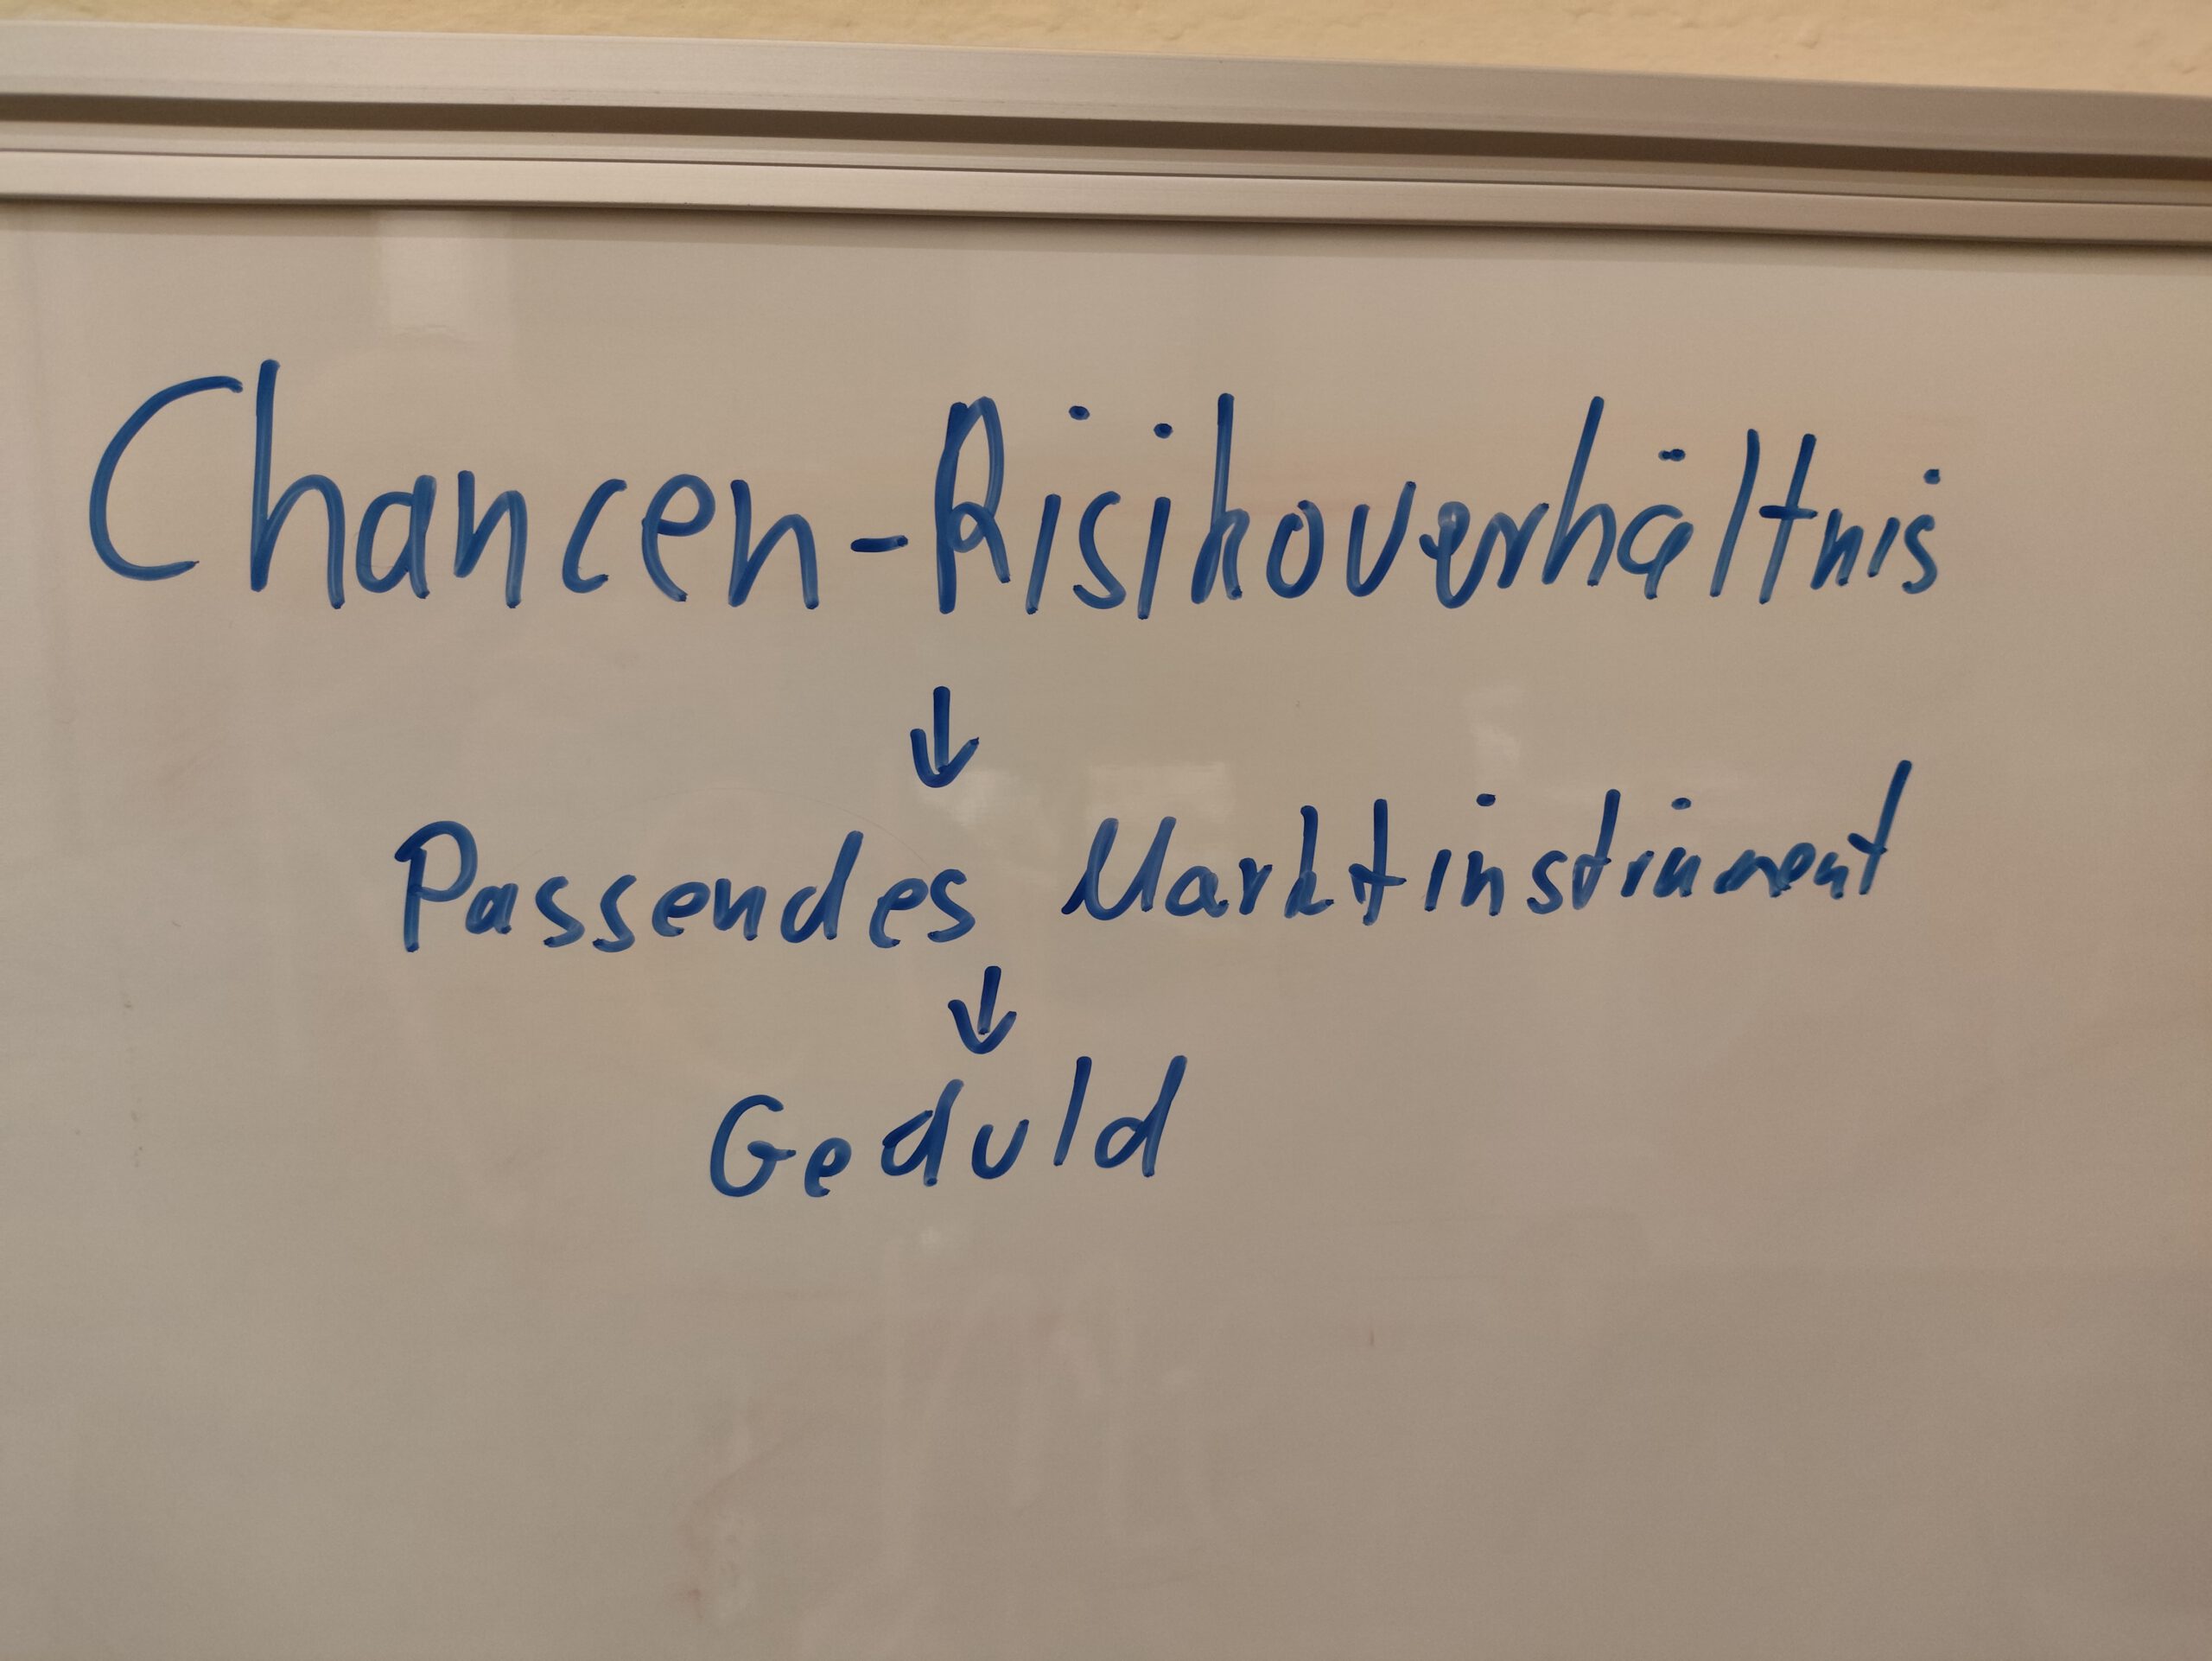 Chancen-Risikoverhältnis
↓
Passendes Marktinstrument
↓
Geduld